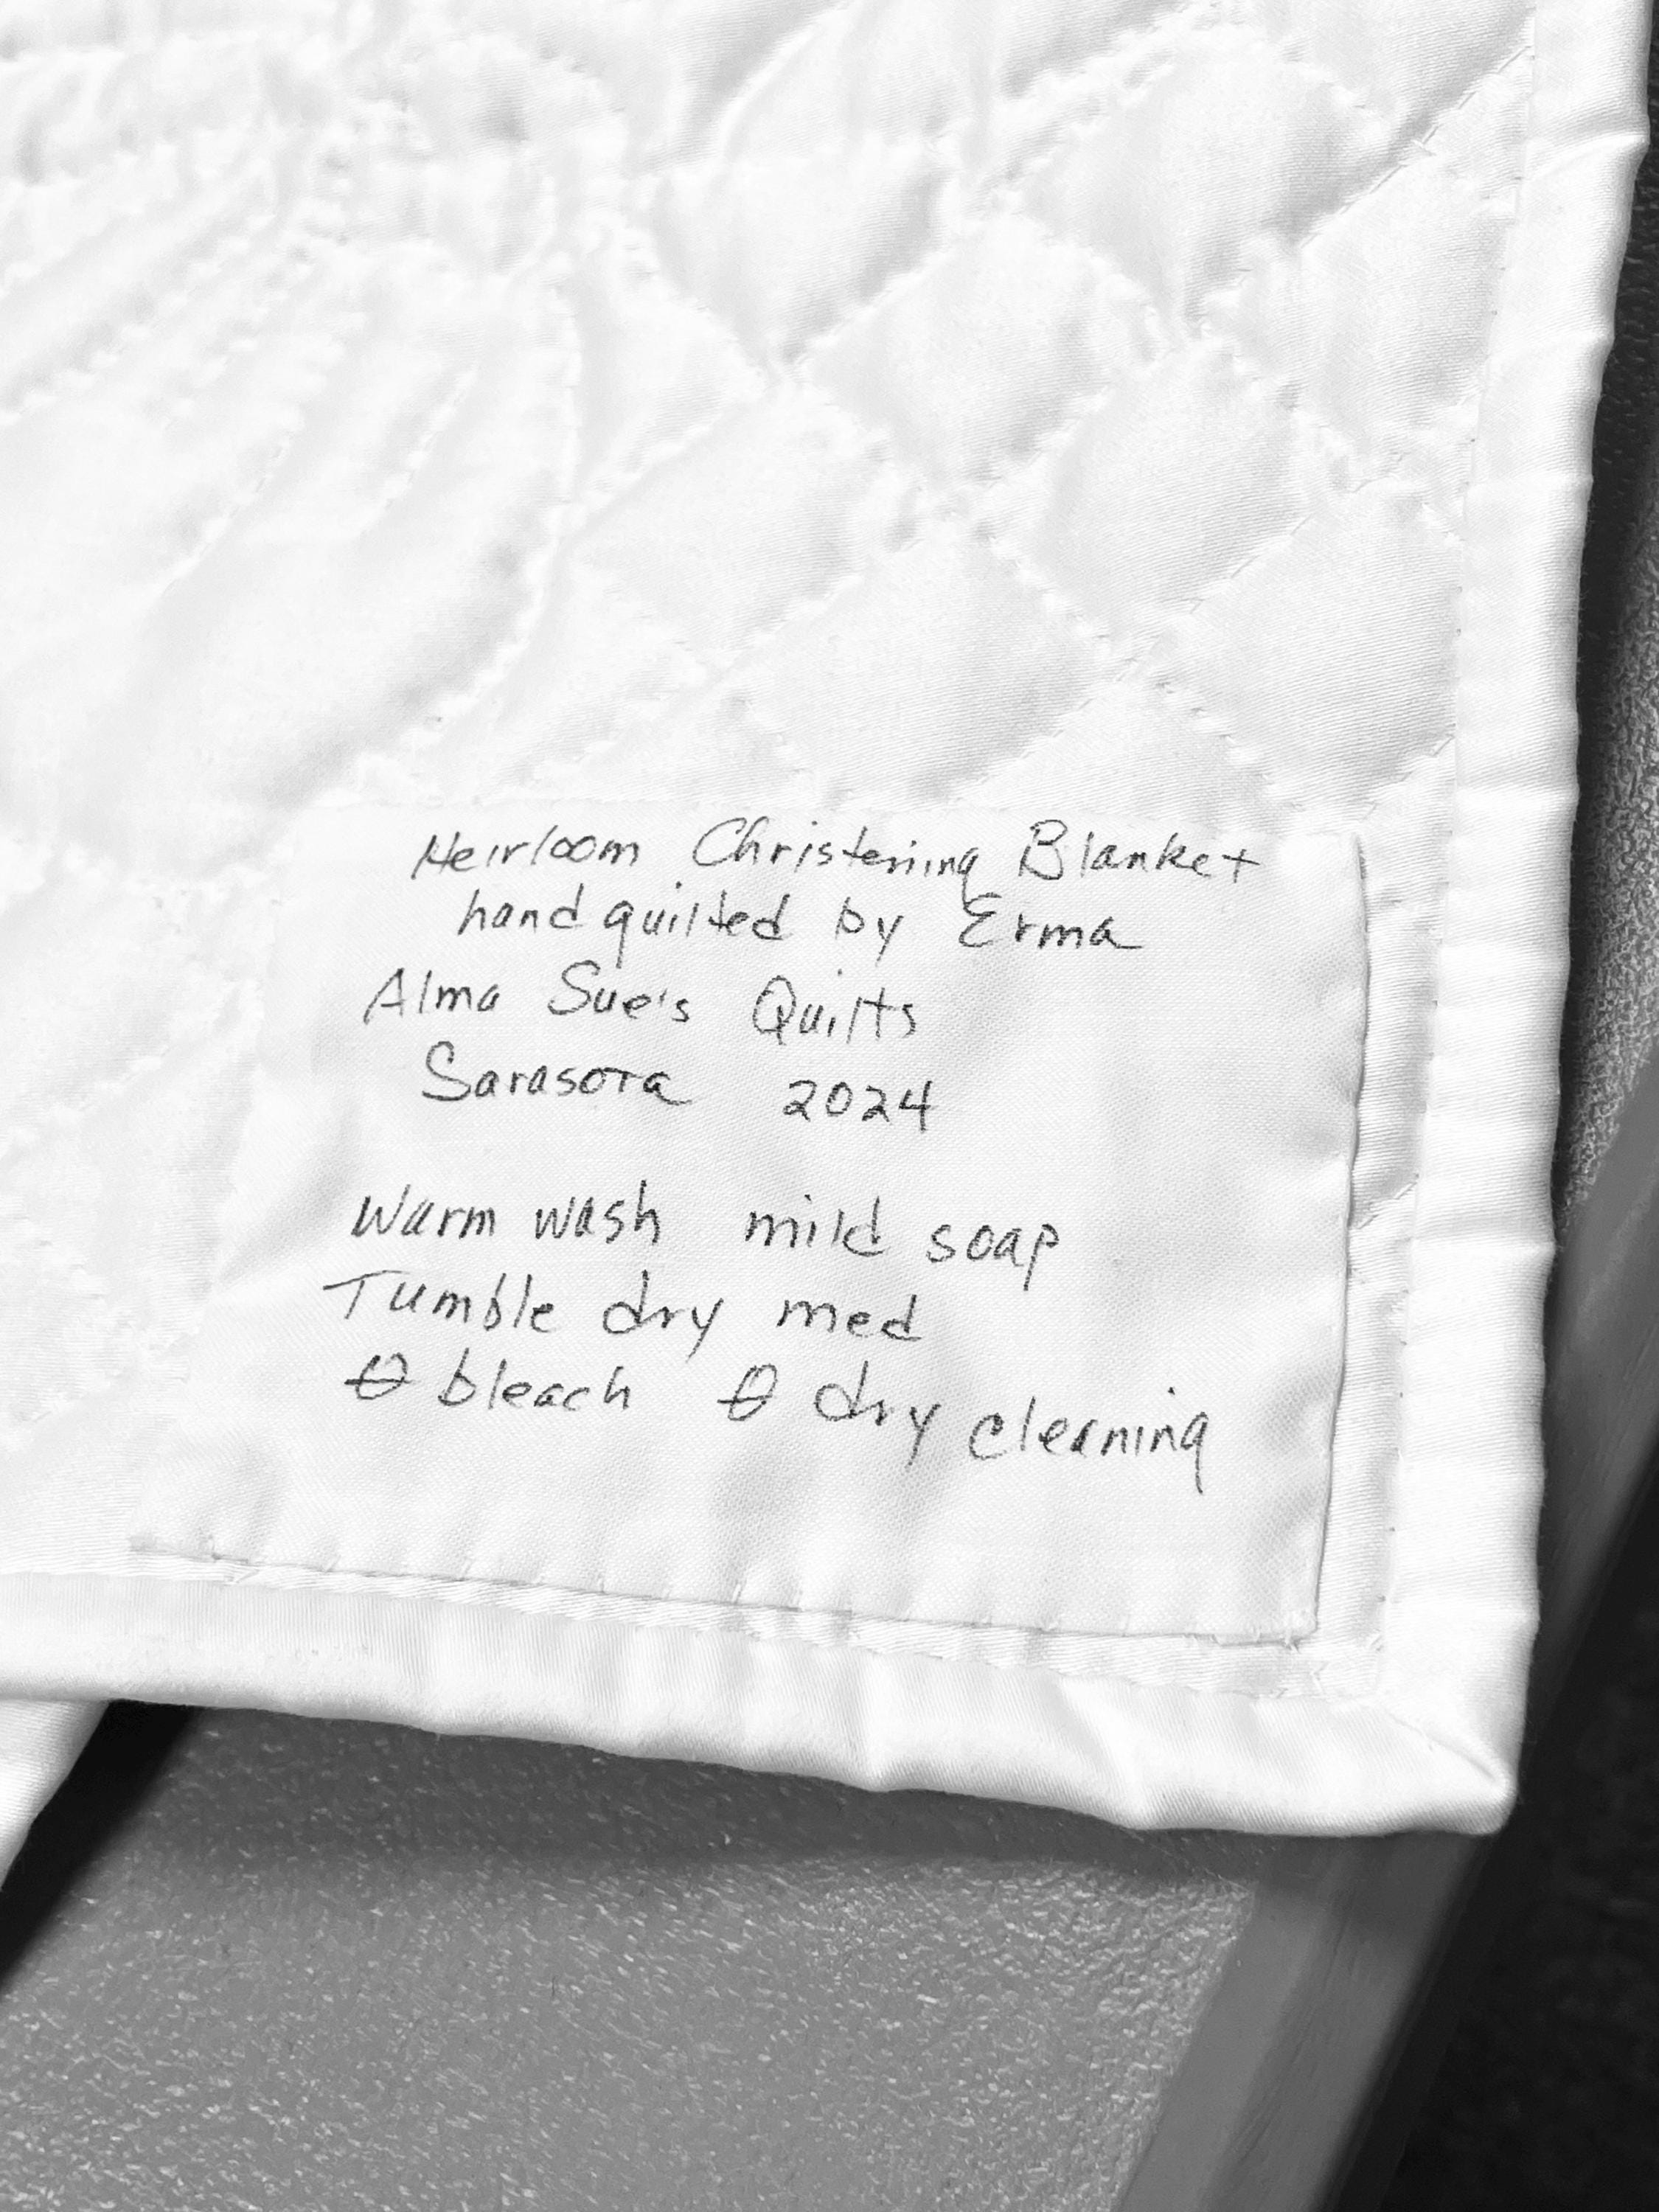 Heirloom Christening Blanket
hand quilted by Erma
Alma Sue's Quilts
Sarasota 2024
Warm wash mild soap
Tumble dry med
θ bleach θ dry cleaning